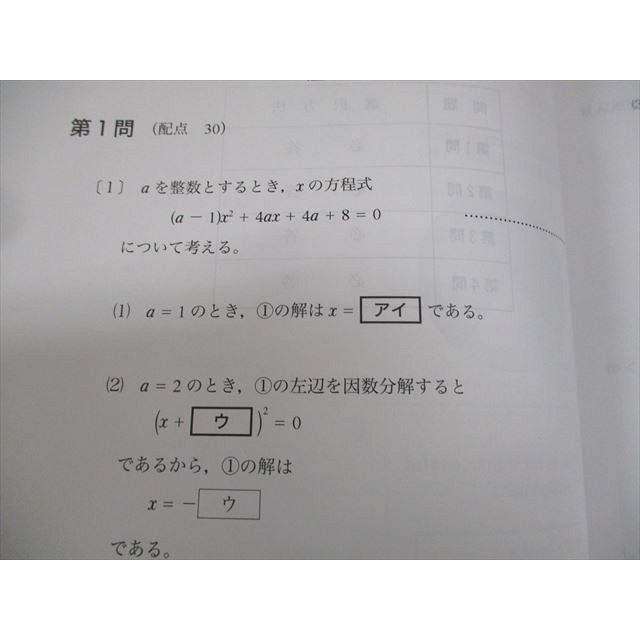 第1問 (配点 30)
〔1〕 aを整数とするとき，xの方程式
(a − 1)x² + 4ax + 4a + 8 = 0
について考える。
(1) a = 1のとき，①の解はx = アイ である。
(2) a = 2のとき，①の左辺を因数分解すると
(x + ウ)² = 0
であるから，①の解は
x = − ウ
である。